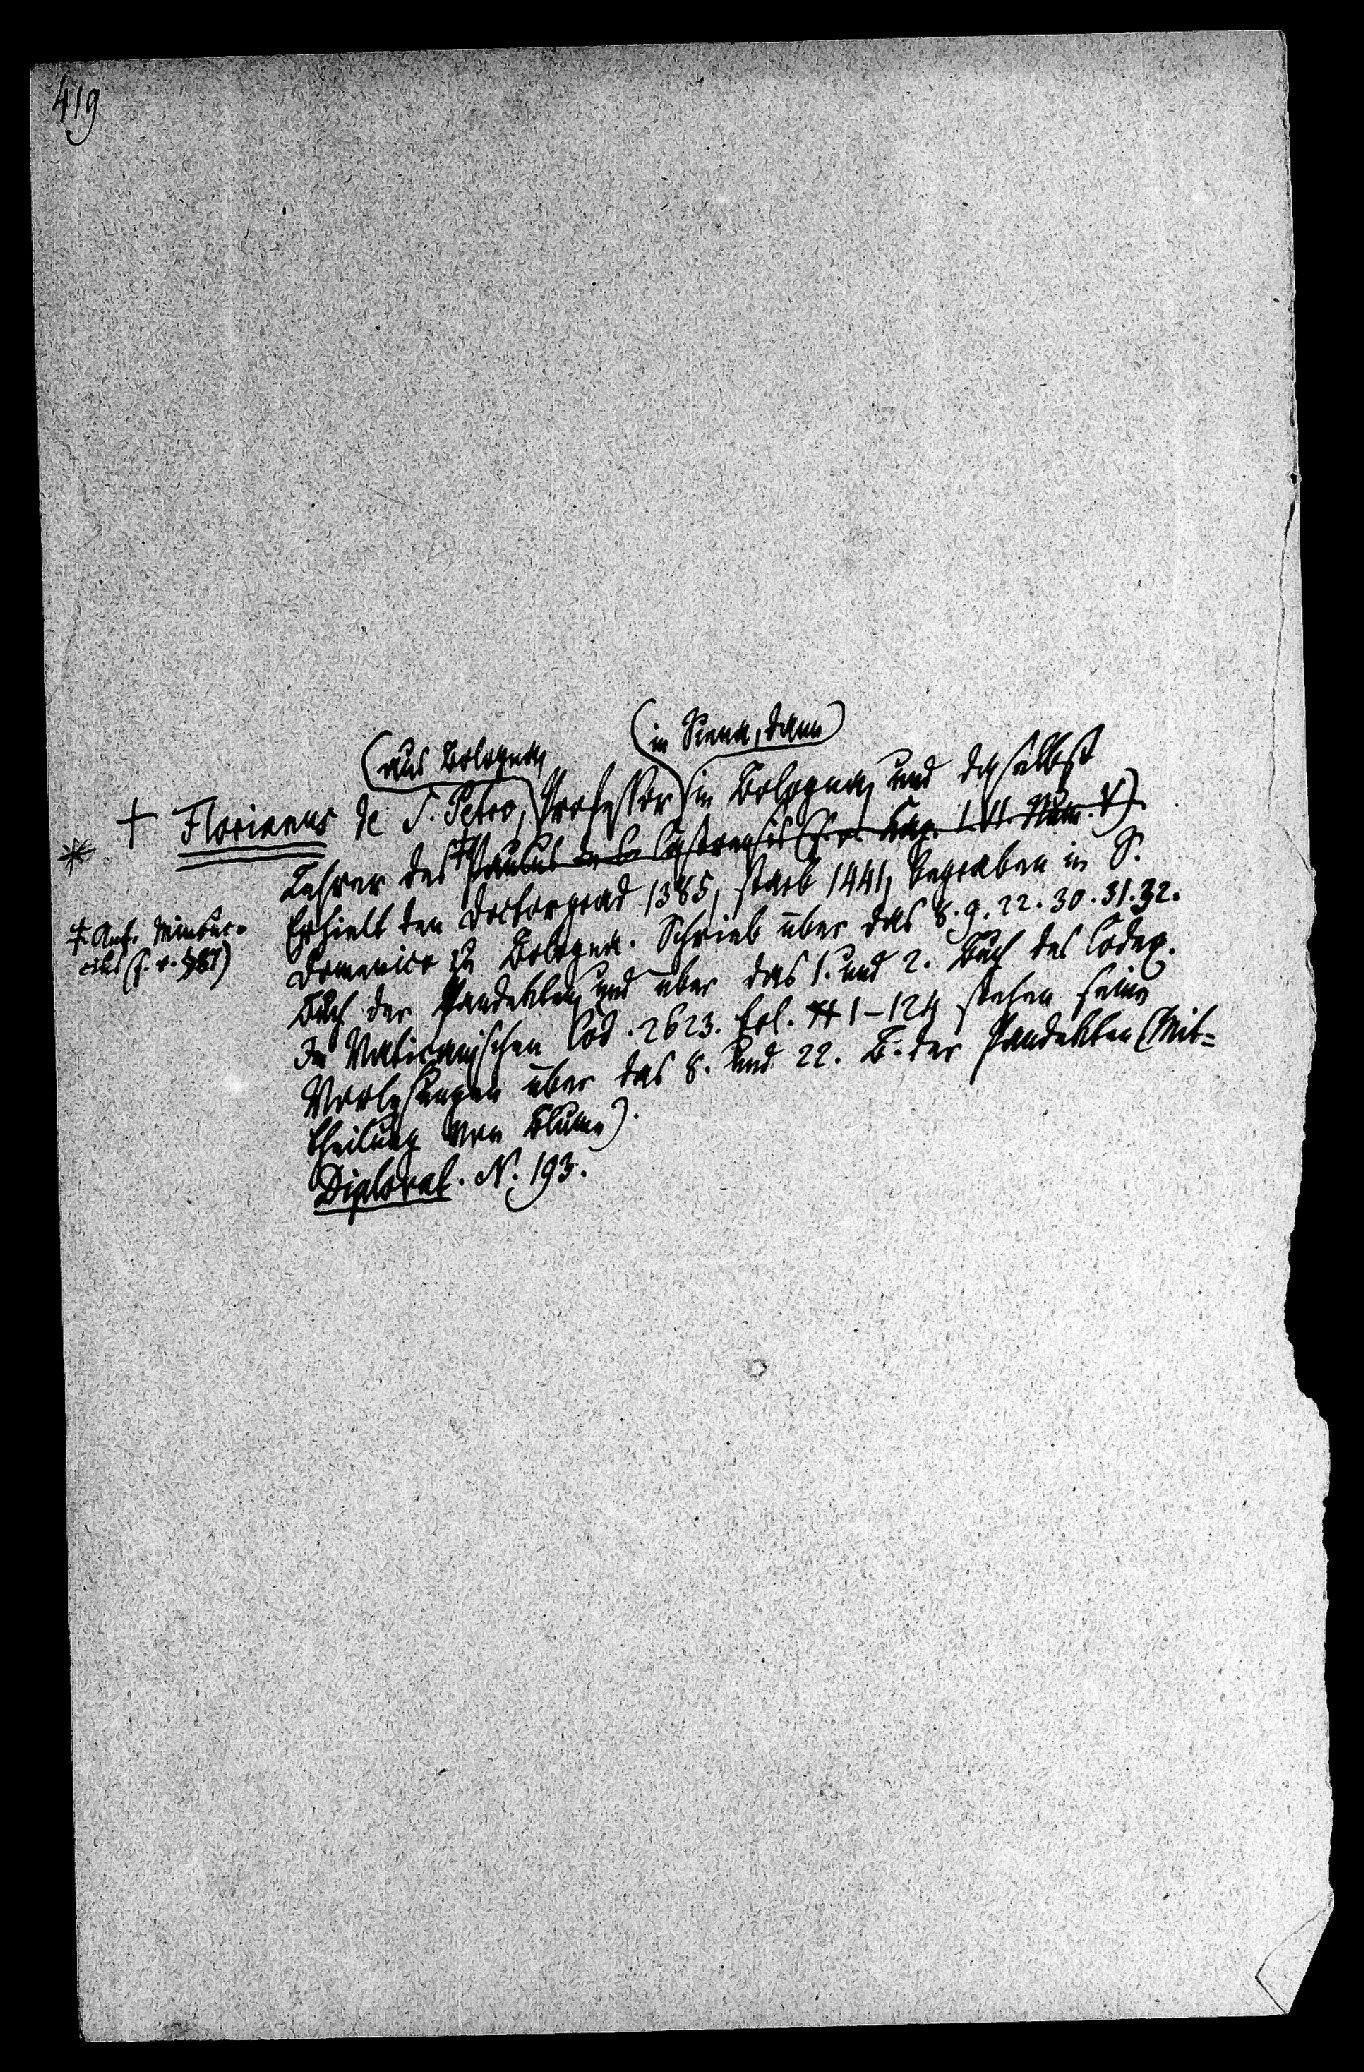 419
(aus Bologna
(in Siena, dann)
† Florianus de S. Petro, Professor in Bologna, und daselbst
Lehrer des Paulus de Castrensis (s. o. Kap. LVI. Num. V)
Erhielt den Doctorgrad 1385, starb 1441, begraben in S.
‡ Ant. Minuc-
cius (s. o. §87)
Domenico zu Bologna. Schrieb über das 8. 9. 22. 30. 31. 32.
Buch der Pandekten, und über das 1. und 2. Buch des Codex.
Im Vaticanischen Cod. 2623. fol. 1–124 stehen seine
Vorlesungen über das 8. und 22. B. der Pandekten (Mit-
theilung von Blume).
Diplovat. N. 193.